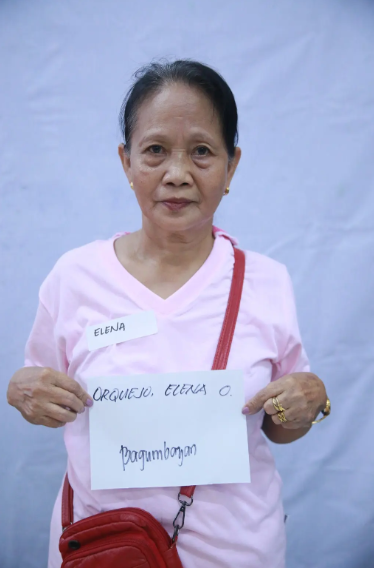 ELENA
ORQUEJO, ELENA O.
Bagumbayan